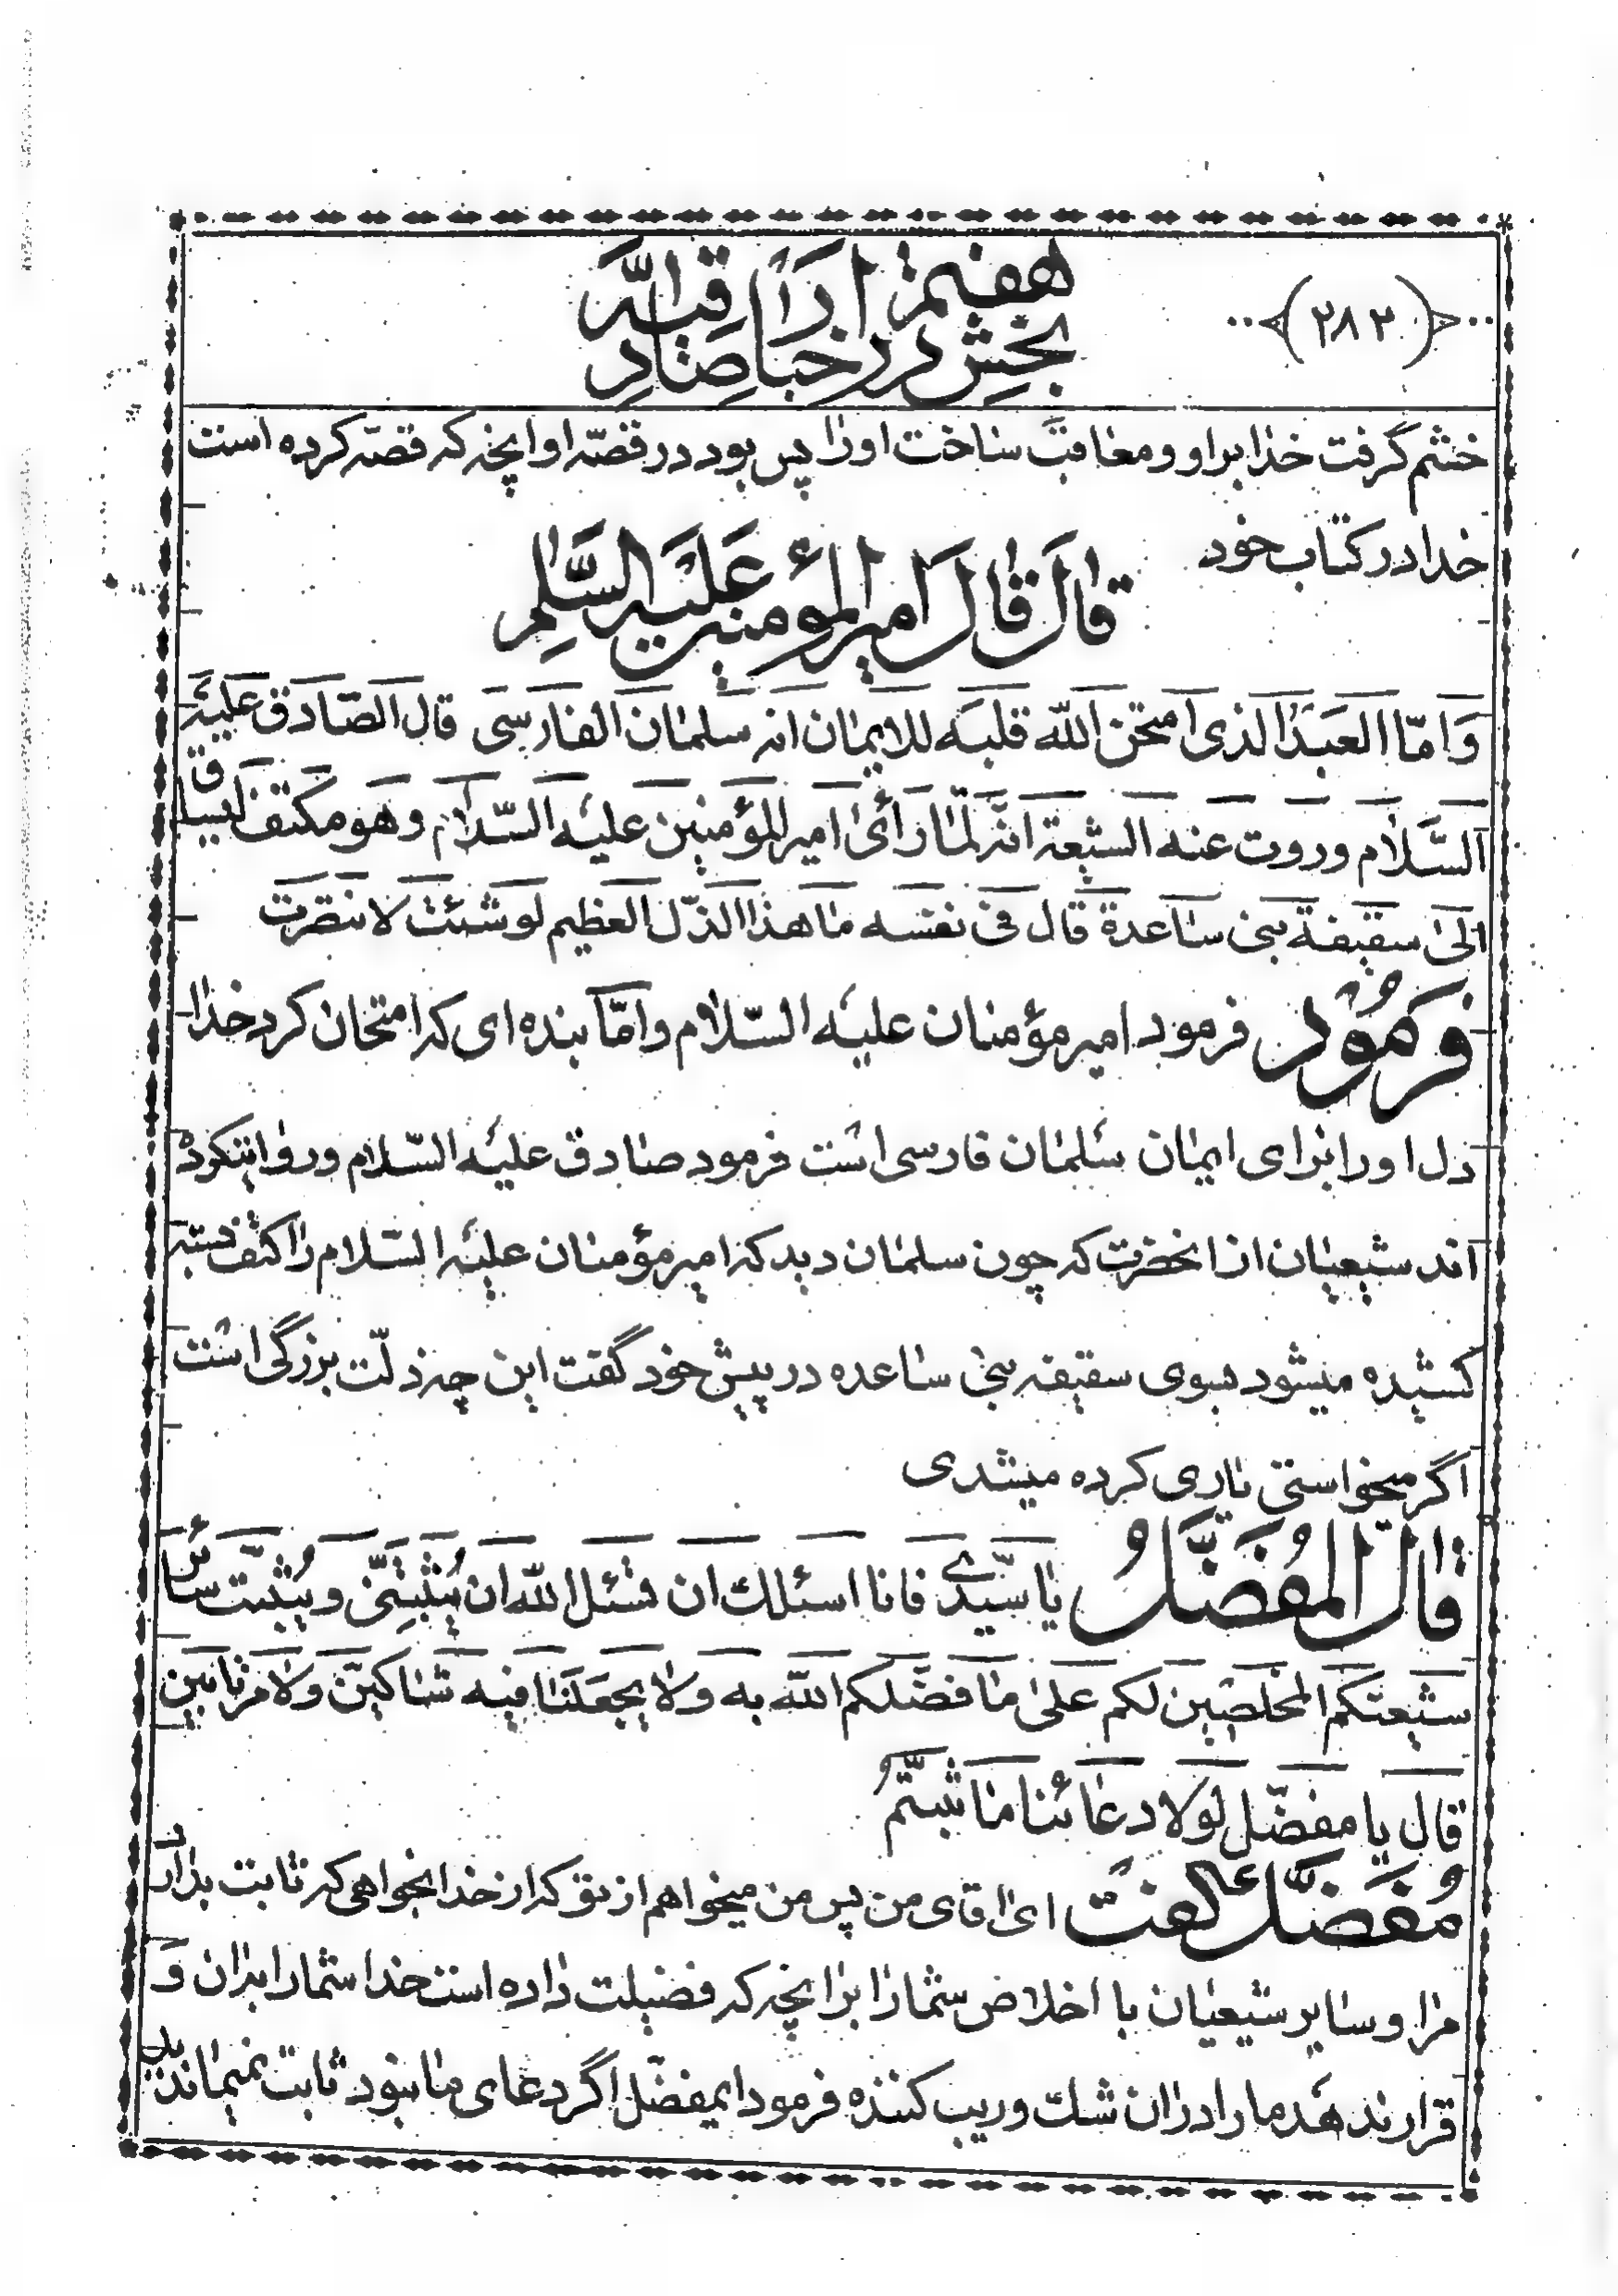 (۲۸۳)
بخش هفتم در اخبار صادقیه
خشم گرفت خدا بر او و معاقب ساخت او را پس بود در قصّه او انچه که قصّه کرده است
خدا در کتاب خود
قال قال امیر المؤمنین علیه السّلم
وَامّا العَبَدُ الذی امتحن اللّه قلبَه للایمٰان انه سلمٰان الفارسی قال الصّادق علیه
السَّلام وروت عنه الشیعة انّه لمّا رأیٰ امیر المؤمنین علیه السّلام وهو مکتف یساق
الیٰ سقیفة بنی سٰاعدة قال فی نفسه مٰا هذا الذّل العظیم لو شئت لانتصرت
فرمود فرمود امیر مؤمنان علیه السّلام وامّا بنده ای که امتحان کرد خدا
دل او را برای ایمٰان سلمٰان فارسی است فرمود صٰادق علیه السّلام وروایت کرده
اند شیعیٰان از انحضرت که چون سلمٰان دید که امیر مؤمنان علیه السّلام را کتف بسته
کشیده میشود بسوی سقیفه بنی سٰاعده در پیش خود گفت این چه ذلّت بزرگی است
اگر میخواستی یاری کرده میشدی
قال المُفَضَّلُ یٰا سیّدی فانا اسئلك ان تسئل اللّه ان یُثَبِّتَنی ویُثبّت سائر
شیعتکم المخلصین لکم علیٰ مٰا فضّلکم اللّه به ولا یجعَلَنا فیه شٰاکین ولا مرتابین
قال یا مفضّل لولا دعٰائنا مٰا ثبتّمُ
مُفَضَّل گفت ای اقای من پس من میخواهم از تو که از خدا بخواهی که ثابت بدارد
مرا و سایر شیعیٰان با اخلاص شما را بر انچه که فضیلت داده است خدا شما را بران وَ
قرار ندهد ما را دران شك وریب کننده فرمود ایمفضّل اگر دعای مٰا نبود ثابت نمیماندید